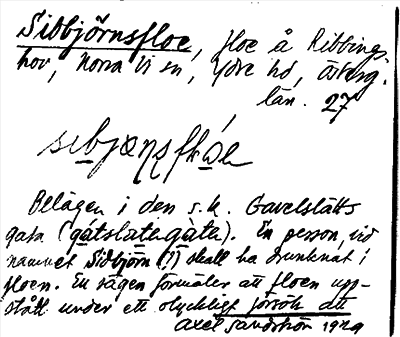 Sibbjörnsfloe, floe å Ribbings-
hov, Norra Vi sn, Ydre hd, Österg.
län. 27
Belägen i den s.k. Gavelslätts
gata (gatslatagata). En person vid
namnet Sibbjörn (!) skall ha drunknat i
floen. En sägen förmäler att floen upp-
stått under ett olyckligt försök att
Axel Sandström 1929